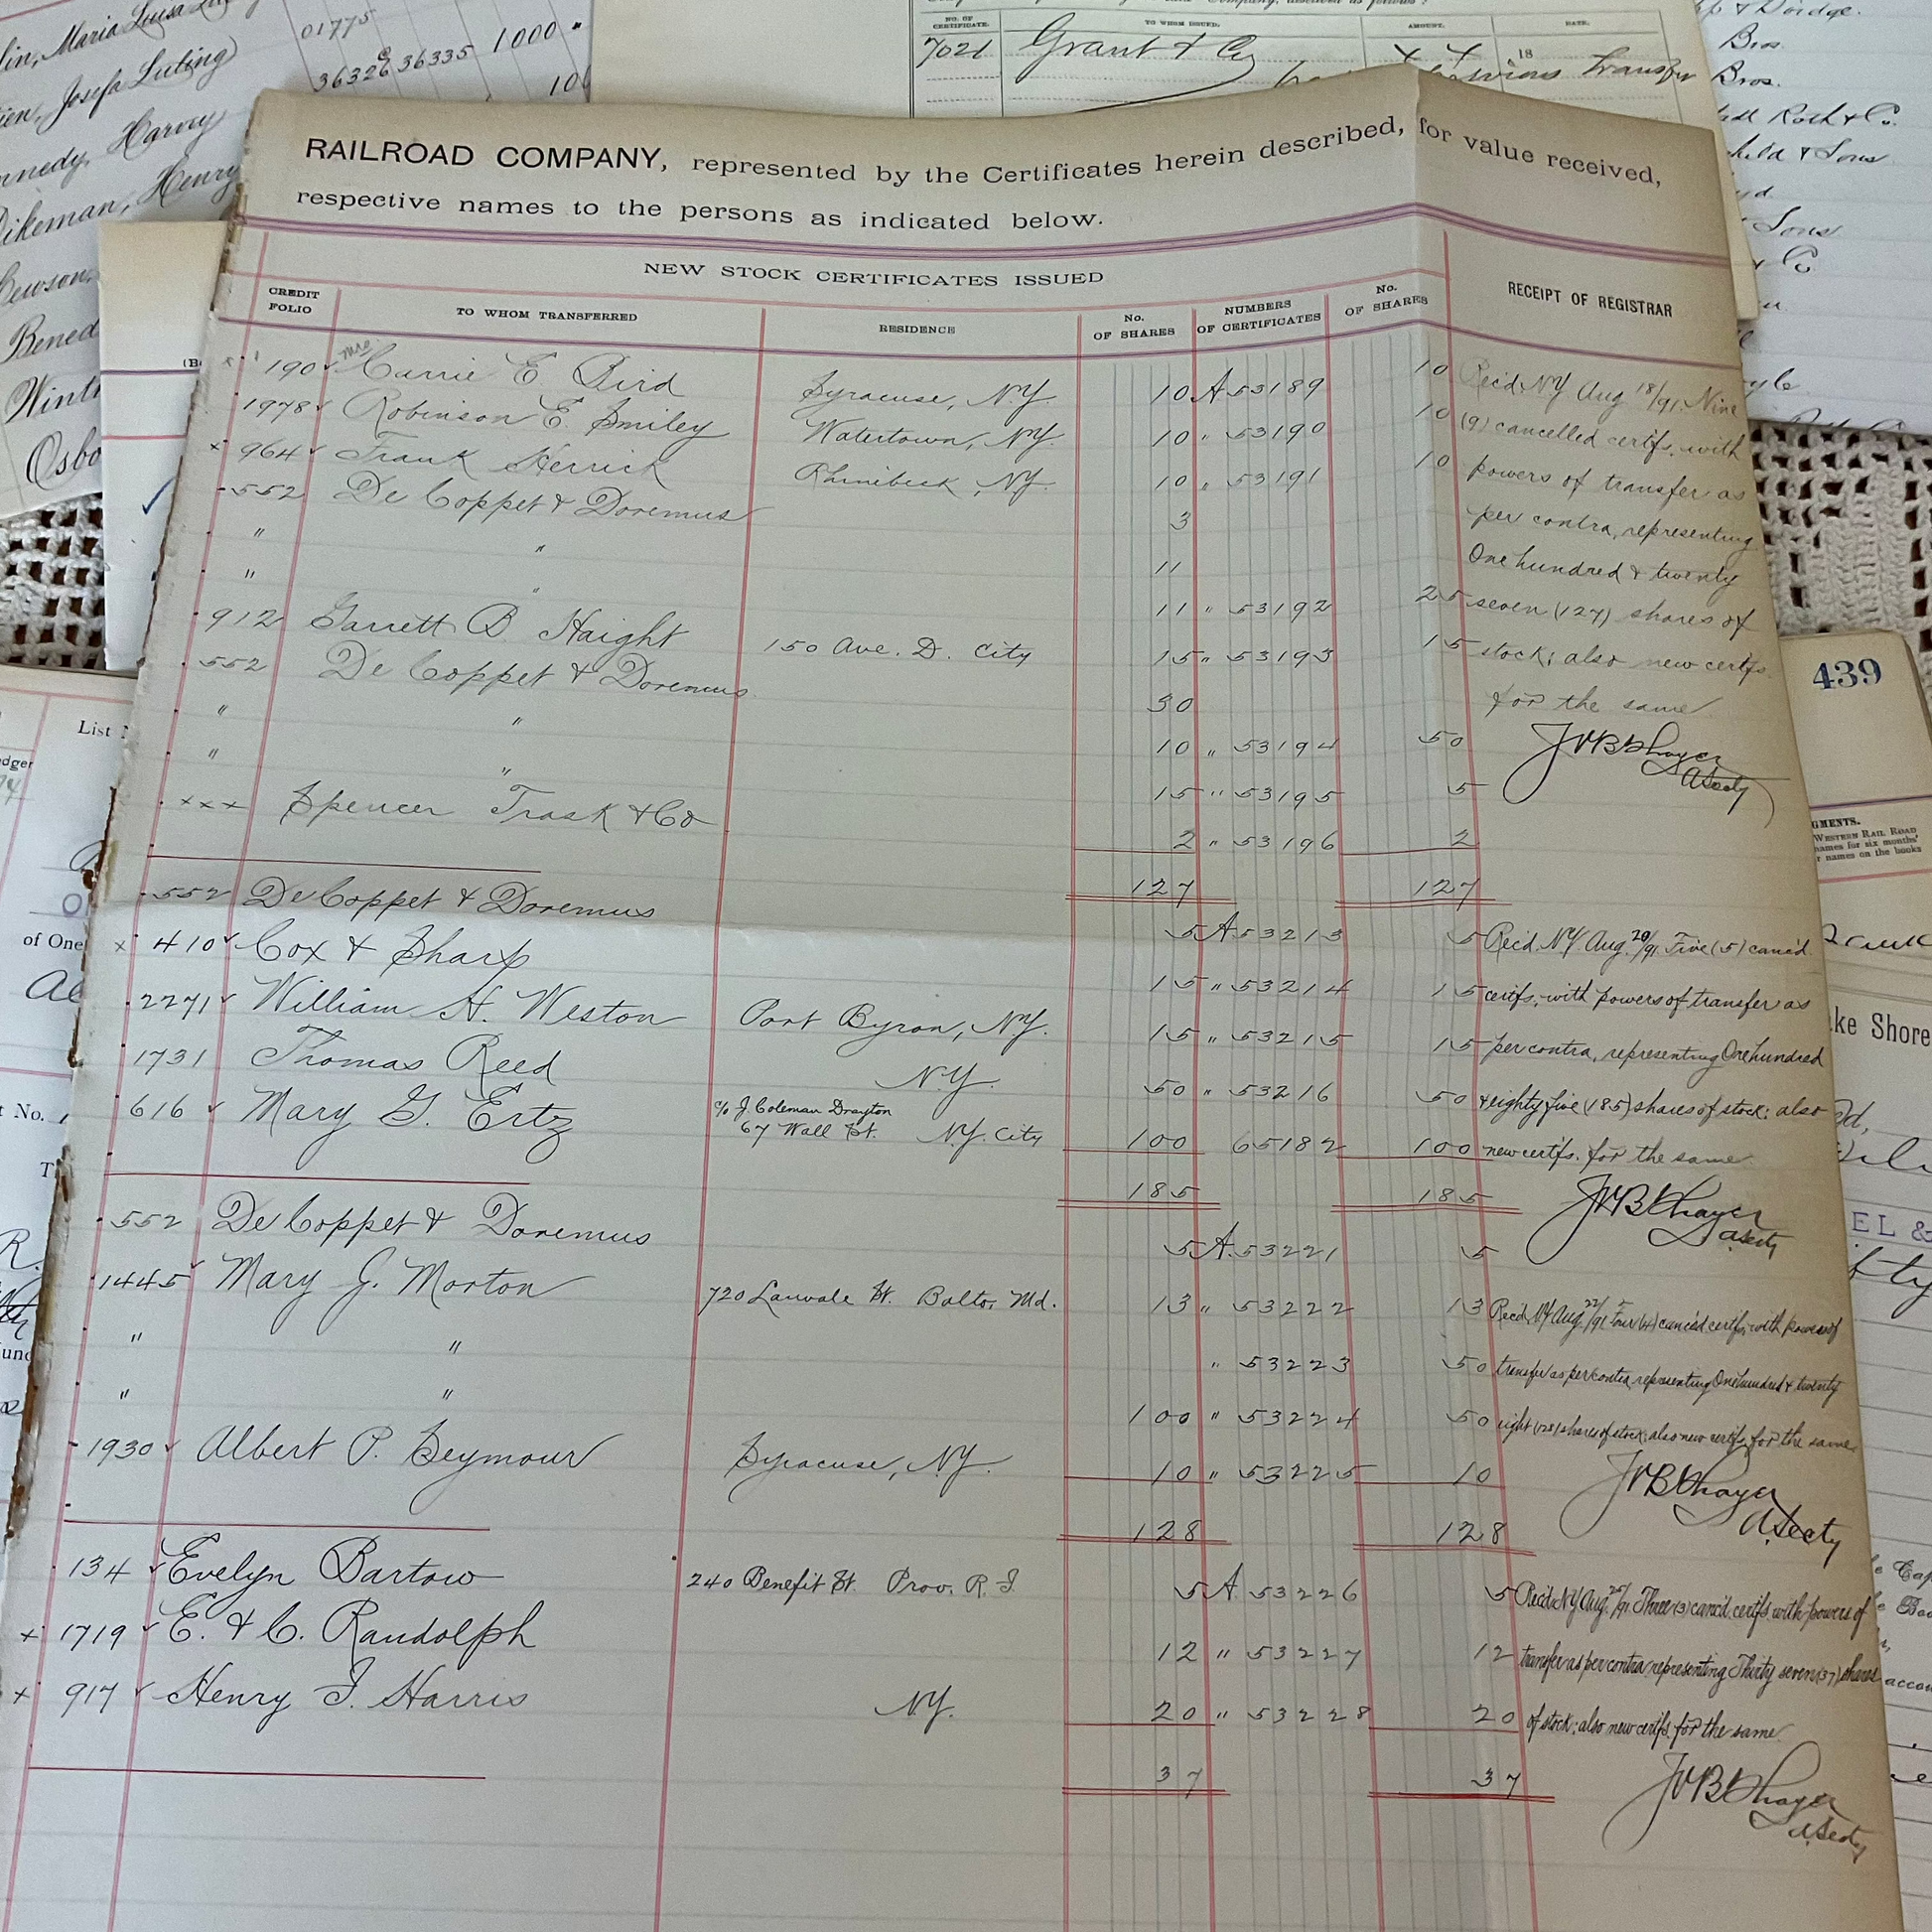 01775
lin, Maria Luisa
36326 36335 1000
ien, Josefa Luling
100
nnedy, Harvey
Dikeman, Henry
Benned
Osbo
NO. OF CERTIFICATE. TO WHOM ISSUED. AMOUNT. DATE.
7021 Grant & Co 18
transfer
& Dodge.
Bros
Bros.
Roth & Co.
child & Sons
Sons
Co
RAILROAD COMPANY, represented by the Certificates herein described, for value received,
respective names to the persons as indicated below.
NEW STOCK CERTIFICATES ISSUED
CREDIT FOLIO TO WHOM TRANSFERRED RESIDENCE No. OF SHARES NUMBERS OF CERTIFICATES No. OF SHARES RECEIPT OF REGISTRAR
190 Mrs Carrie E. Bird Syracuse, N.Y. 10 A 53189 10 Rec'd. N.Y Aug 18/91. Nine
1978 Robinson E. Smiley Watertown, N.Y. 10 " 53190 10 (9) cancelled certfs. with
x 964 Frank Herrick Rhinebeck, N.Y. 10 " 53191 10 powers of transfer as
552 De Coppet & Doremus 3 per contra, representing
" " 11 One hundred & twenty
" " 11 " 53192 25 seven (127) shares of
912 Garrett B Haight 150 Ave. D. City 15 " 53193 15 stock; also new certfs.
552 De Coppet & Doremus 30 for the same
" " 10 " 53194 50 JVB Thayer
" " 15 " 53195 5 A Secty
xxx Spencer Trask & Co 2 " 53196 2
127 127
552 De Coppet & Doremus 5 A 53213 5 Rec'd. N.Y. Aug. 20/91. Five (5) canc'd
x 410 Cox & Sharp 15 " 53214 15 certfs. with powers of transfer as
2271 William H. Weston Port Byron, N.Y. 15 " 53215 15 per contra, representing One hundred
1731 Thomas Reed N.Y. 50 " 53216 50 & eighty five (185) shares of stock; also
616 Mary G. Ertz c/o J. Coleman Drayton
67 Wall St. N.Y. City 100 65182 100 new certfs. for the same
185 185 JVB Thayer
A Secty
552 De Coppet & Doremus 5 A. 53221 5
1445 Mary J. Morton 720 Lanvale St. Balto. Md. 13 " 53222 13 Rec'd. N.Y Aug. 22/91 Four (4) canc'd certfs. with powers of
" " " 53223 50 transfer as per contra representing One hundred & twenty
" " 100 " 53224 50 eight (128) shares of stock; also new certfs. for the same
1930 Albert P. Seymour Syracuse, N.Y. 10 " 53225 10 JVB Thayer
128 128 A. Secty
134 Evelyn Bartow 240 Benefit St. Prov. R.I. 5 A 53226 5 Rec'd. N.Y Aug. 25/91. Three (3) canc'd. certfs. with powers of
x 1719 E. & C. Randolph 12 " 53227 12 transfer as per contra representing Thirty seven (37) shares
x 917 Henry I. Harris N.Y. 20 " 53228 20 of stock; also new certfs. for the same
37 37 JVB Thayer
A. Secty
List
of One
No.
439
WESTERN RAIL ROAD
names for six months'
names on the books
ke Shore
EL &